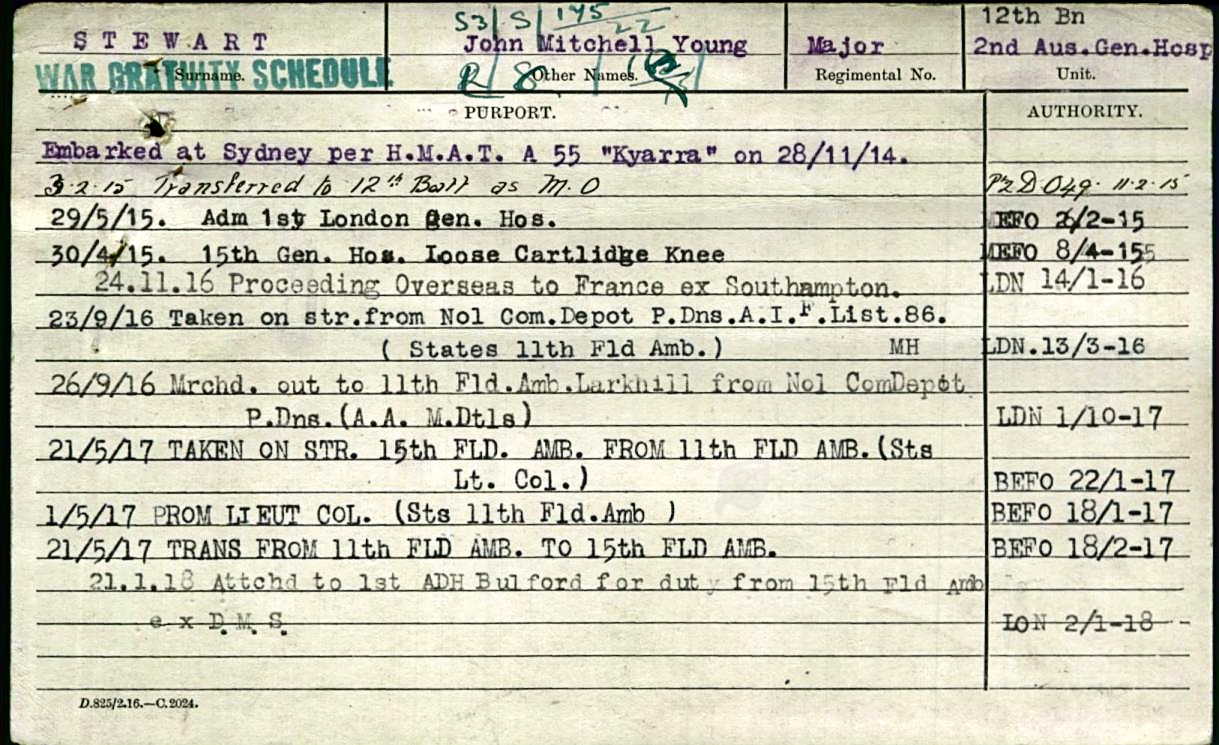 S3/S/ 145/22
12th Bn
STEWART John Mitchell Young Major 2nd Aus.Gen.Hosp
WAR GRATUITY SCHEDULE
Surname. Other Names. Regimental No. Unit.
PURPORT. AUTHORITY.
Embarked at Sydney per H.M.A.T. A 55 "Kyarra" on 28/11/14.
3.2.15 Transferred to 12th Batt as M.O 11.2.15
29/5/15. Adm 1st London Gen. Hos. MEFO 26/2-15
30/4/15. 15th Gen. Hos. Loose Cartlidge Knee MEFO 8/4-155
24.11.16 Proceeding Overseas to France ex Southampton. LDN 14/1-16
23/9/16 Taken on str.from No1 Com.Depot P.Dns.A.I.F.List.86.
( States 11th Fld Amb.) MH LDN.13/3-16
26/9/16 Mrchd. out to 11th Fld.Amb.Larkhill from No1 ComDepot
P.Dns.(A.A. M.Dtls) LDN 1/10-17
21/5/17 TAKEN ON STR. 15th FLD. AMB. FROM 11th FLD AMB.(Sts
Lt. Col.) BEFO 22/1-17
1/5/17 PROM LIEUT COL. (Sts 11th Fld.Amb ) BEFO 18/1-17
21/5/17 TRANS FROM 11th FLD AMB. TO 15th FLD AMB. BEFO 18/2-17
21.1.18 Attchd to 1st ADH Bulford for duty from 15th Fld Amb
ex D.M.S. LON 2/1-18
D.825/2.16.—C.2024.